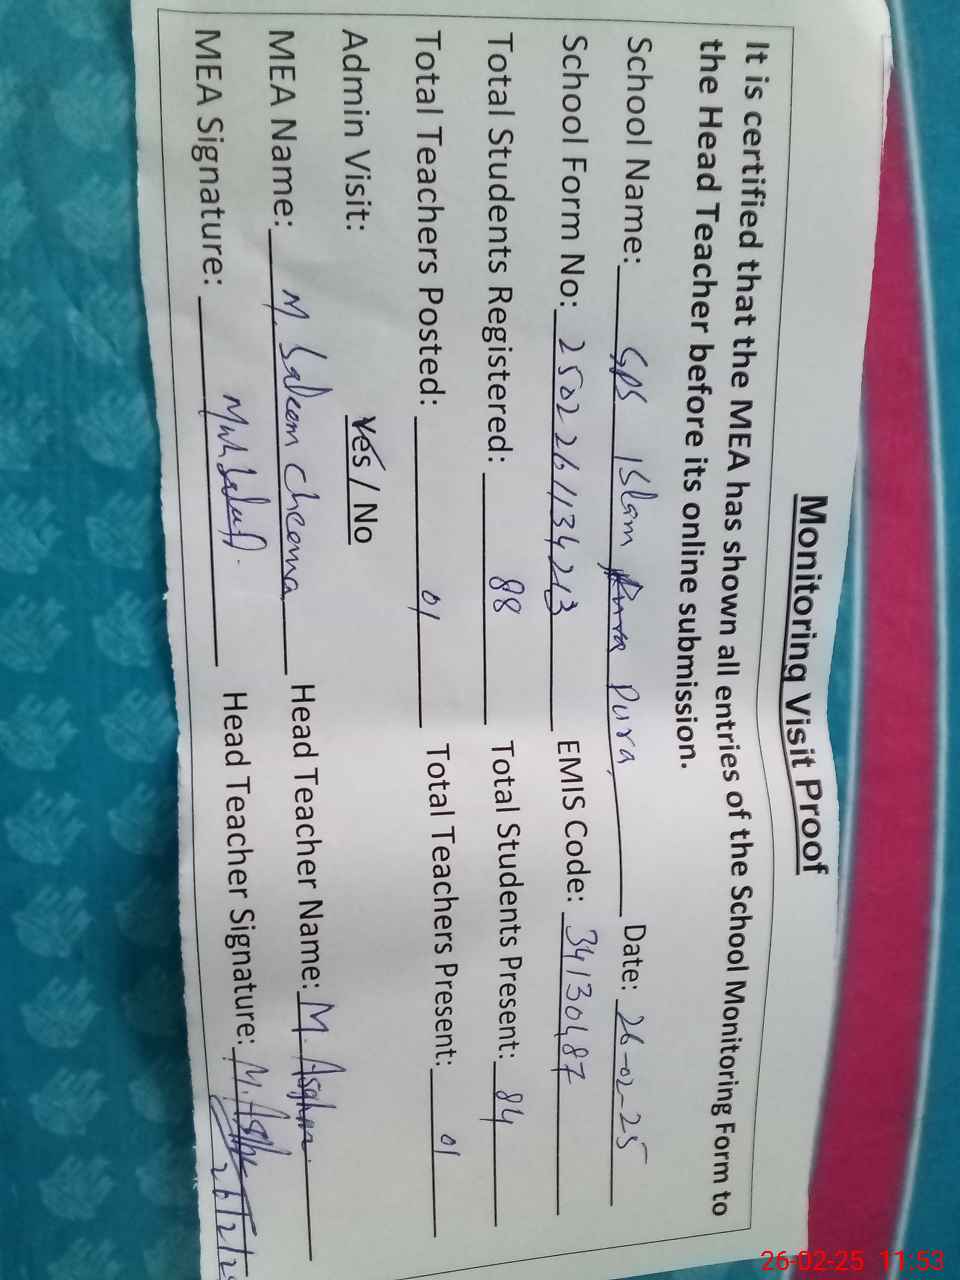 Monitoring Visit Proof
It is certified that the MEA has shown all entries of the School Monitoring Form to
the Head Teacher before its online submission.
School Name: GPS Islam Pura Pura, Date: 26-02-25
School Form No: 2502261134213 EMIS Code: 34130487
Total Students Registered: 88 Total Students Present: 84
Total Teachers Posted: 01 Total Teachers Present: 01
Admin Visit: Yes / No
MEA Name: M. Saleem Cheema Head Teacher Name: M. Asghar
MEA Signature: Head Teacher Signature:
26-02-25 11:53